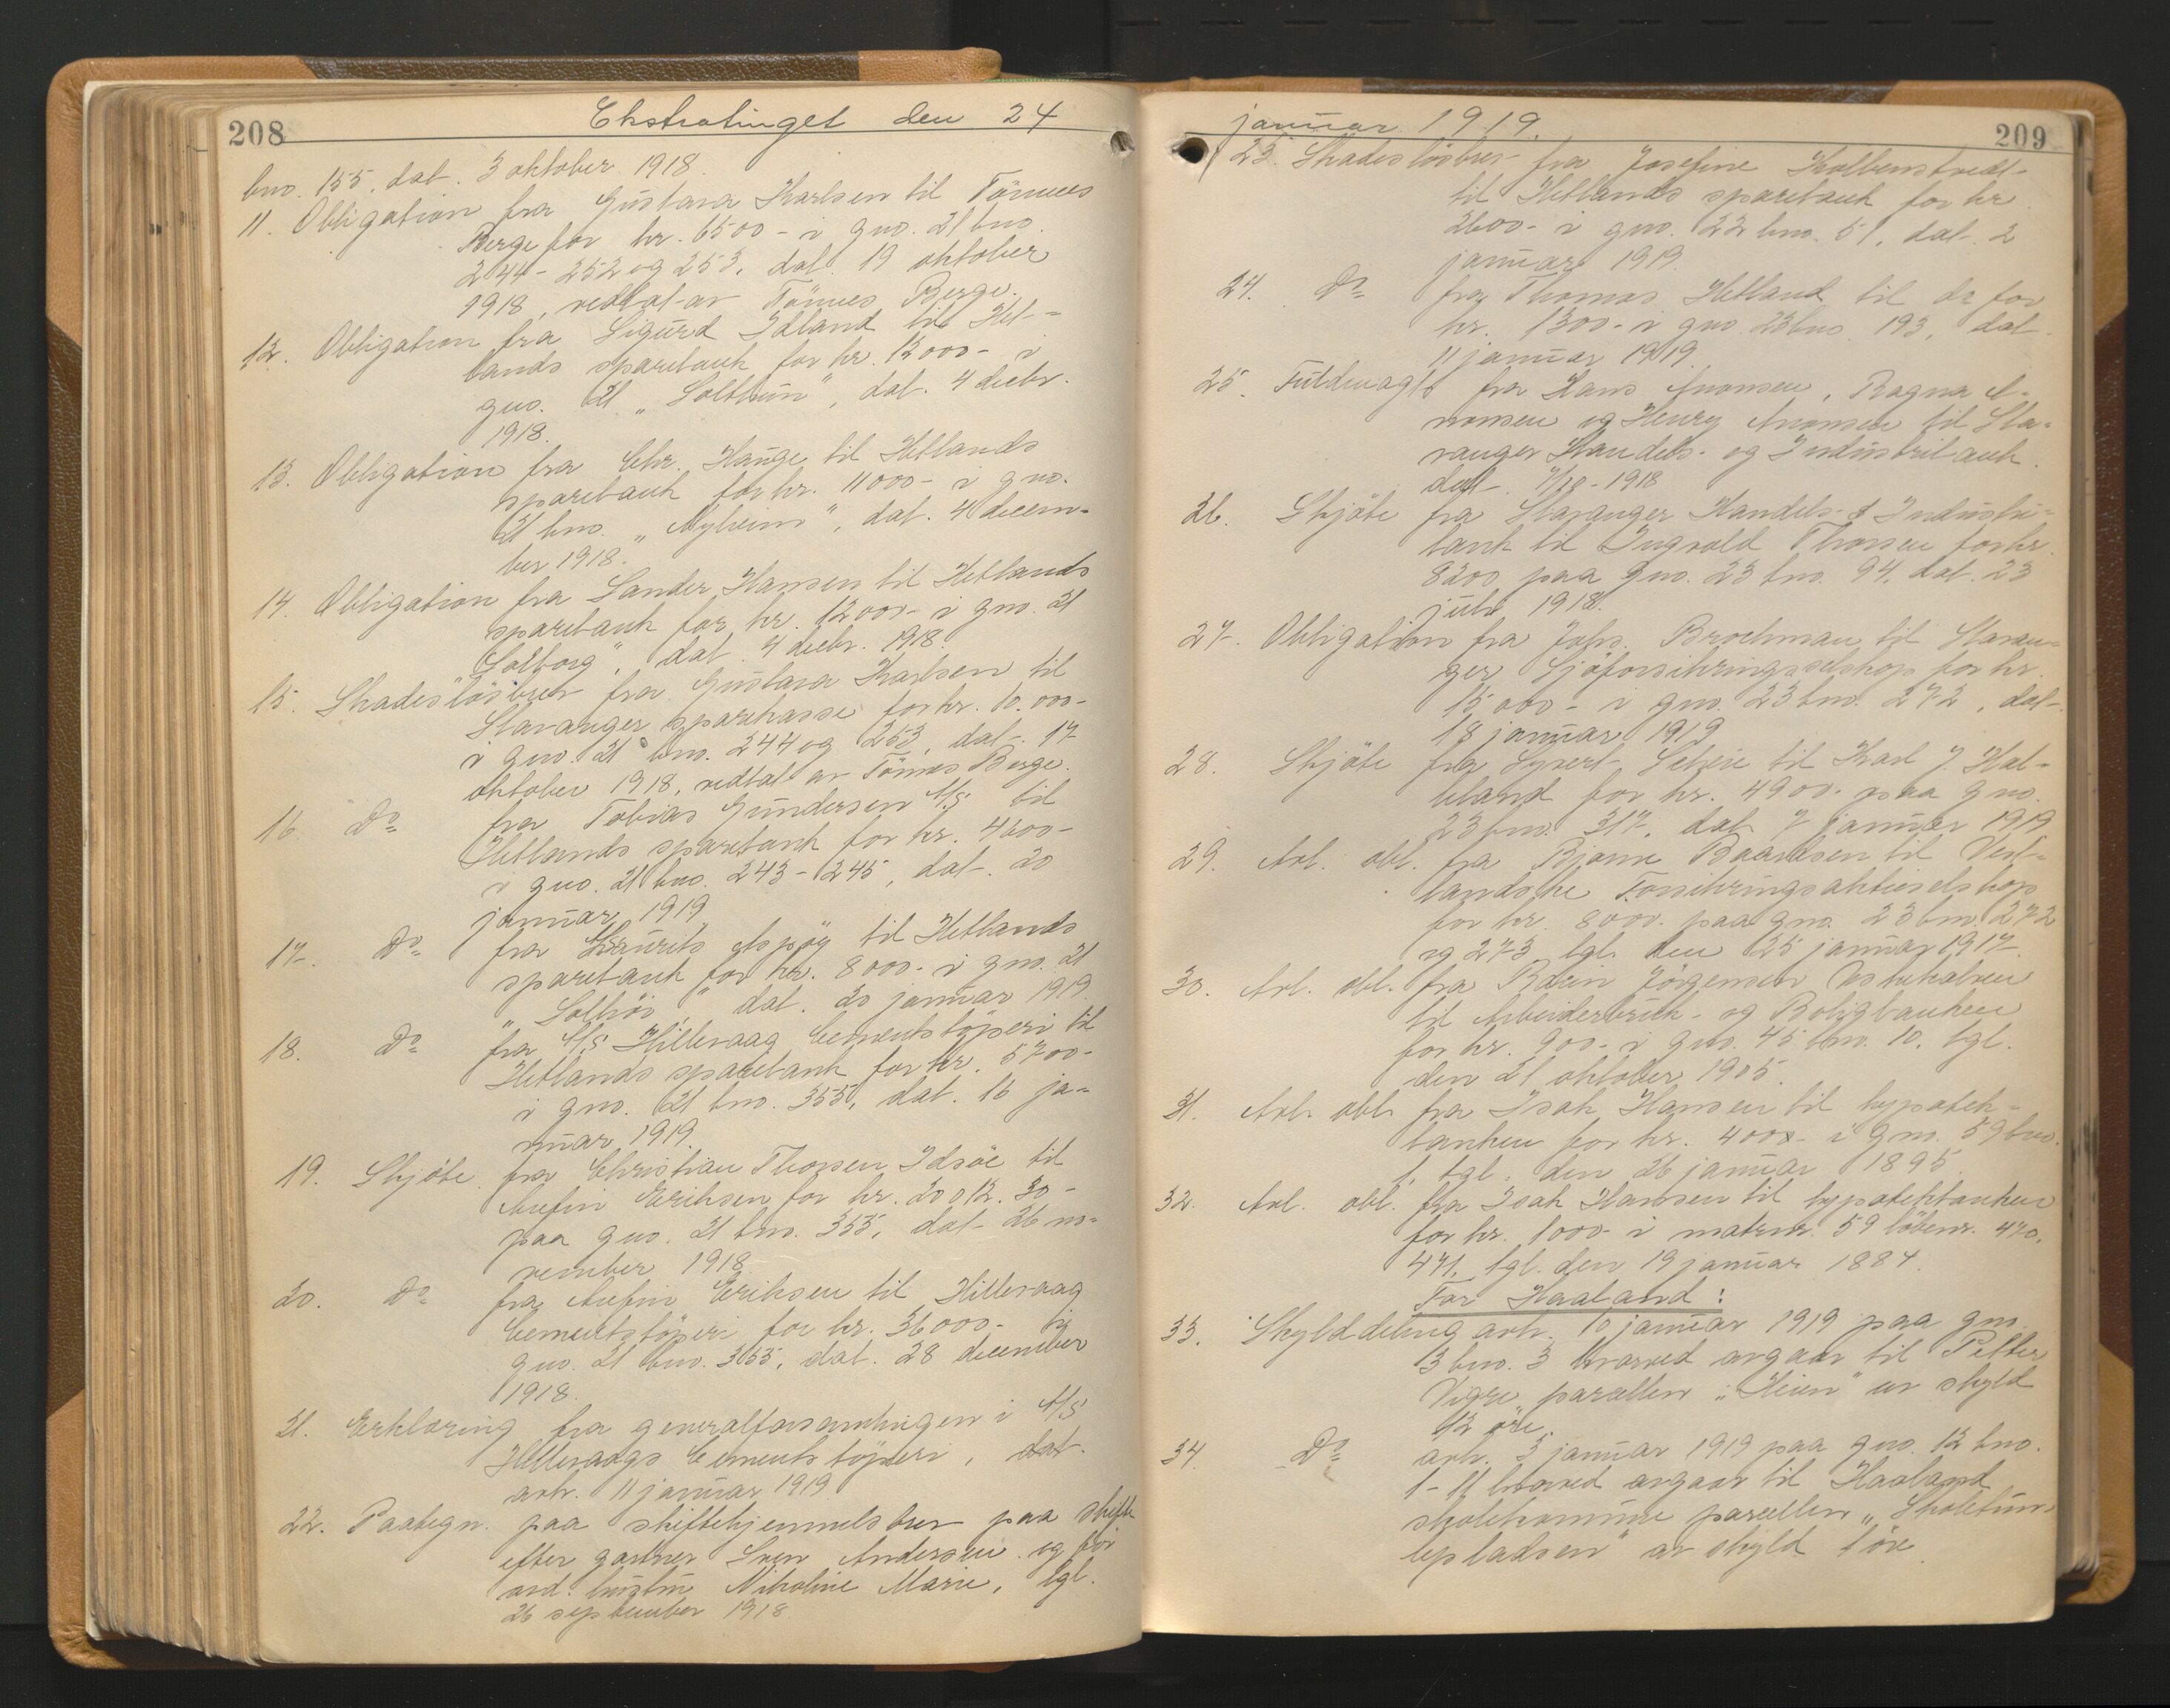 208
Ekstratinget den 24
bno. 155, dat. 3 oktober 1918.
11. Obligation fra Gustava Karlsen til Tönnes
Berge for kr. 6500- i gno. 21 bno.
244- 252 og 253, dat. 19 oktober
1918, vedtat av Tönnes Berge.
12. Obligation fra Sigurd Idland til Het-
lands sparebank for kr. 12000- i
gno. 21 „Soltun", dat. 4 decbr.
1918.
13. Obligation fra Chr. Hauge til Hetlands
sparebank for kr. 11000- i gno.
21 bno. „Nyheim", dat. 4 decem-
ber 1918.
14. Obligation fra Sander Hansen til Hetlands
sparebank for kr. 12000- i gno. 21
„Solborg", dat. 4 decbr. 1918.
15. Skadeslösbrev fra Gustava Karlsen til
Stavanger sparekasse for kr. 10.000-
i gno. 21 bno. 244 og 253, dat. 17
oktober 1918, vedtat av Tönnes Berge.
16. Do fra Tobias Gundersen A/S til
Hetlands sparebank for kr. 4200-
i gno. 21 bno. 243-245, dat. 20
januar 1919
17. Do fra Laurits Aspöy til Hetlands
sparebank for kr. 8000- i gno. 21
„Solhöi" dat. 20 januar 1919
18. Do fra A/S Hilleraag Cementstöperi til
Hetlands sparebank for kr. 5700-
i gno. 21 bno. 355, dat. 16 ja-
nuar 1919.
19. Skjöte fra Christian Thorsen Idsöe til
Anfin Eriksen for kr. 20012.30-
paa gno. 21 bno. 355, dat. 26 no-
vember 1918
20. Do fra Anfin Eriksen til Hilleraag
Cementstöperi for kr. 36000- i
gno. 21 bno. 355, dat. 28 december
1918.
21. Erklæring fra generalforsamlingen i A/S
Hilleraags Cementstöperi, dat.
avh. 11 januar 1919
22. Paategn. paa skiftehjemmelsbrev paa skifte
efter gartner Sven Andersen og för
avd. hustru Nikoline Marie, tgl.
26 september 1918
januar 1919.
209
23. Skadeslösbrev fra Josefine Kolbenstvedt
til Hetlands sparebank for kr.
2600- i gno. 22 bno. 51, dat. 2
januar 1919.
24. Do fra Thomas Hetland til do for
kr. 1300- i gno. 23 bno. 193, dat.
11 januar 1919.
25. Fuldmagt fra Hans Aronsen, Ragna A-
ronsen og Henry Aronsen til Sta-
vanger Handels- og Industribank.
dat. 7/10-1918
26. Skjöte fra Stavanger Handels- & Industri-
bank til Ingvald Thorsen for kr.
8200 paa gno. 23 bno. 94, dat. 23
juli 1918.
27. Obligation fra Johs. Brochman til Stavan-
ger Sjöforsikringsselskap for kr.
15000- i gno. 23 bno. 272, dat.
18 januar 1919
28. Skjöte fra Syvert Scheie til Karl J. Hal-
leland for kr. 4900- paa gno.
23 bno. 317, dat. 7 januar 1919
29. Avl. obl. fra Bjarne Baardsen til Vest-
landske Forsikringsaktieselskap
for kr. 8000- paa gno. 23 bno. 272
og 273 tgl. den 25 januar 1917.
30. Avl. obl. fra Jörgensen
til Arbeiderbruk- og Boligbanken
for kr. 900- i gno. 45 bno. 10, tgl.
den 21 oktober 1905.
31. Avl. obl. fra Isak Hansen til hypotek-
banken for kr. 4000- i gno. 59 bno.
1, tgl. den 26 januar 1895.
32. Avl. obl. fra Isak Hansen til hypotekbanken
for kr. 1000- i matrnr. 59 löbenr. 470,
471, tgl. den 19 januar 1884.
For Haaland:
33. Skylddeling avh. 10 januar 1919 paa gno.
13 bno. 3 hvorved avgaar til Petter
Vigre parcellen „Heien" av skyld
12 öre.
34. Do avh. 3 januar 1919 paa gno. 12 bno.
1-11 hvorved avgaar til Haaland
skolekommune parcellen „Skoletun-
lepladsen" av skyld 1 öre